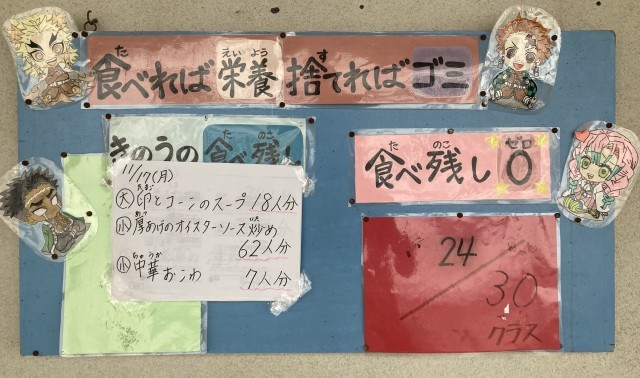 食べれば栄養 捨てればゴミ
た えいよう す
きのうの食べ残し
た のこ
食べ残し0
た のこ ゼロ
11/17(月)
大 卵とコーンのスープ 18人分
たまご
小 厚あげのオイスターソース炒め
あつ いた
62人分
小 中華おこわ 7人分
ちゅうか
24
30
クラス